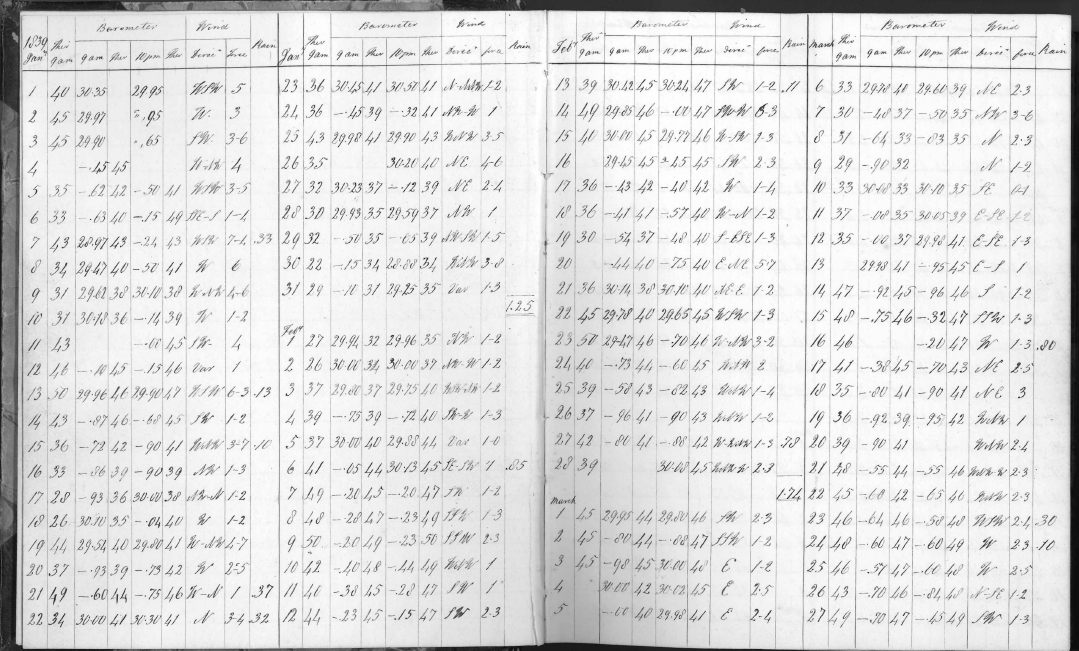 Barometer Wind
1839 Jany Ther 9am 9am Ther 10pm Ther Direcn Force Rain
1 40 30.35 29.95 WSW 5
2 45 29.97 ".95 W. 3
3 45 29.90 ".65 SW. 3-6
4 -.45 45 4
5 35 -.62 42 -.50 41 WSW 3-5
6 33 -.63 40 -.15 49 SE-S 1-4
7 43 28.97 43 -.24 43 WSW 7-4 .33
8 34 29.47 40 -.50 41 W 6
9 31 29.62 38 30.10 38 W-NW 4-6
10 31 30.18 36 -.14 39 W 1-2
11 43 -.00 45 SW- 4
12 46 -.10 45 -.15 46 Var 1
13 50 29.96 46 29.90 47 WSW 6-3 .13
14 43 -.87 46 -.68 45 SW 1-2
15 36 -.72 42 -.90 41 WNW 3-7 .10
16 33 -.86 39 -.90 39 NW 1-3
17 28 -.93 36 30.00 38 NW-N 1-2
18 26 30.10 35 -.04 40 W 1-2
19 44 29.54 40 29.80 41 W-NW 4-7
20 37 -.93 39 -.73 42 W 2-5
21 49 -.60 44 -.75 46 W-N 1 .37
22 34 30.00 41 30.30 41 N 3-4 .32
Barometer Wind
Jany Ther 9am 9am Ther 10pm Ther Direcn force Rain
23 36 30.45 41 30.50 41 N-NNW 1-2
24 36 -.45 39 -.32 41 NW-W 1
25 43 29.98 41 29.90 43 WNW 3-5
26 35 30.20 40 NE 4-6
27 32 30.23 37 -.12 39 NE 2-4
28 30 29.93 35 29.59 37 NW 1
29 32 -.50 35 -.05 39 NW-SW 1-5
30 22 -.15 34 28.88 34 WNW 3-8
31 29 -.10 31 29.25 35 Var 1-3
1.25
Feby
1 27 29.94 32 29.96 35 NW 1-2
2 26 30.00 34 30.00 37 NW-W 1-2
3 37 29.80 37 29.75 40 1-2
4 39 -.75 39 -.72 40 SW-W 1-3
5 37 30.00 40 29.88 44 Var 1-0
6 41 -.05 44 30.13 45 SE-SW 1 .85
7 49 -.20 45 -.20 47 SW 1-2
8 48 -.28 47 -.23 49 SSW 1-3
9 50 -.20 49 -.23 50 SSW 2-3
10 42 -.40 48 -.44 49 1
11 40 -.38 45 -.28 47 SW 1
12 44 -.23 45 -.15 47 SW 2-3
Barometer Wind
Feby Ther 9am 9am 10pm Ther Direcn force Rain
13 39 30.42 45 30.24 47 SW 1-2 .11
14 49 29.85 46 -.00 47 3
15 40 30.00 45 29.77 46 W-SW 2-3
16 29.45 45 ".45 45 SW 2-3
17 36 -.43 42 -.40 42 W 1-4
18 36 -.41 41 -.57 40 W-N 1-2
19 30 -.54 37 -.48 40 S-ESE 1-3
20 -.44 40 -.75 40 E-NE 5-7
21 36 30.14 38 30.10 40 NE-E 1-2
22 45 29.78 40 29.65 45 WSW 1-3
23 50 29.47 46 -.70 46 W-NW 3-2
24 40 -.73 44 -.60 45 WNW 2
25 39 -.58 43 -.82 43 WNW 1-4
26 37 -.96 41 -.90 43 WNW 1-2
27 42 -.80 41 -.88 42 W-WNW 1-3 .78
28 39 30.08 45 WNW 2-3
1.74
March
1 45 29.95 44 29.80 46 SW 2-3
2 45 -.80 44 -.88 47 SSW 1-2
3 45 -.98 45 30.00 48 E 1-2
4 30.00 42 30.02 45 E 2-5
5 -.00 40 29.98 41 E 2-4
Barometer Wind
March Ther 9am 9am Ther 10pm Ther Direcn force Rain
6 33 29.78 40 29.60 39 NE 2-3
7 30 -.48 37 -.50 35 NW 3-6
8 31 -.64 33 -.83 35 N 2-3
9 29 -.90 32 N 1-2
10 33 30.08 33 30.10 35 SE 0-1
11 37 -.08 35 30.05 39 E-SE 1-2
12 35 -.00 37 29.98 41 E-SE 1-3
13 29.98 41 -.95 45 E-S 1
14 47 -.92 45 -.96 46 S 1-2
15 48 -.75 46 -.32 47 SSW 1-3
16 46 -.20 47 W 1-3 .80
17 41 -.38 45 -.70 43 NE 2-5
18 35 -.80 41 -.90 41 NE 3
19 36 -.92 39 -.95 42 WNW 1
20 39 -.90 41 WNW 2-4
21 48 -.55 44 -.55 46 2-3
22 45 -.60 42 -.65 46 WNW 2-3
23 46 -.64 46 -.58 48 WSW 2-4 .30
24 48 -.60 47 -.60 49 W 2-3 .10
25 46 -.57 47 -.60 48 W 2-5
26 43 -.70 46 -.84 48 N-SE 1-2
27 49 -.30 47 -.45 49 SW 1-3